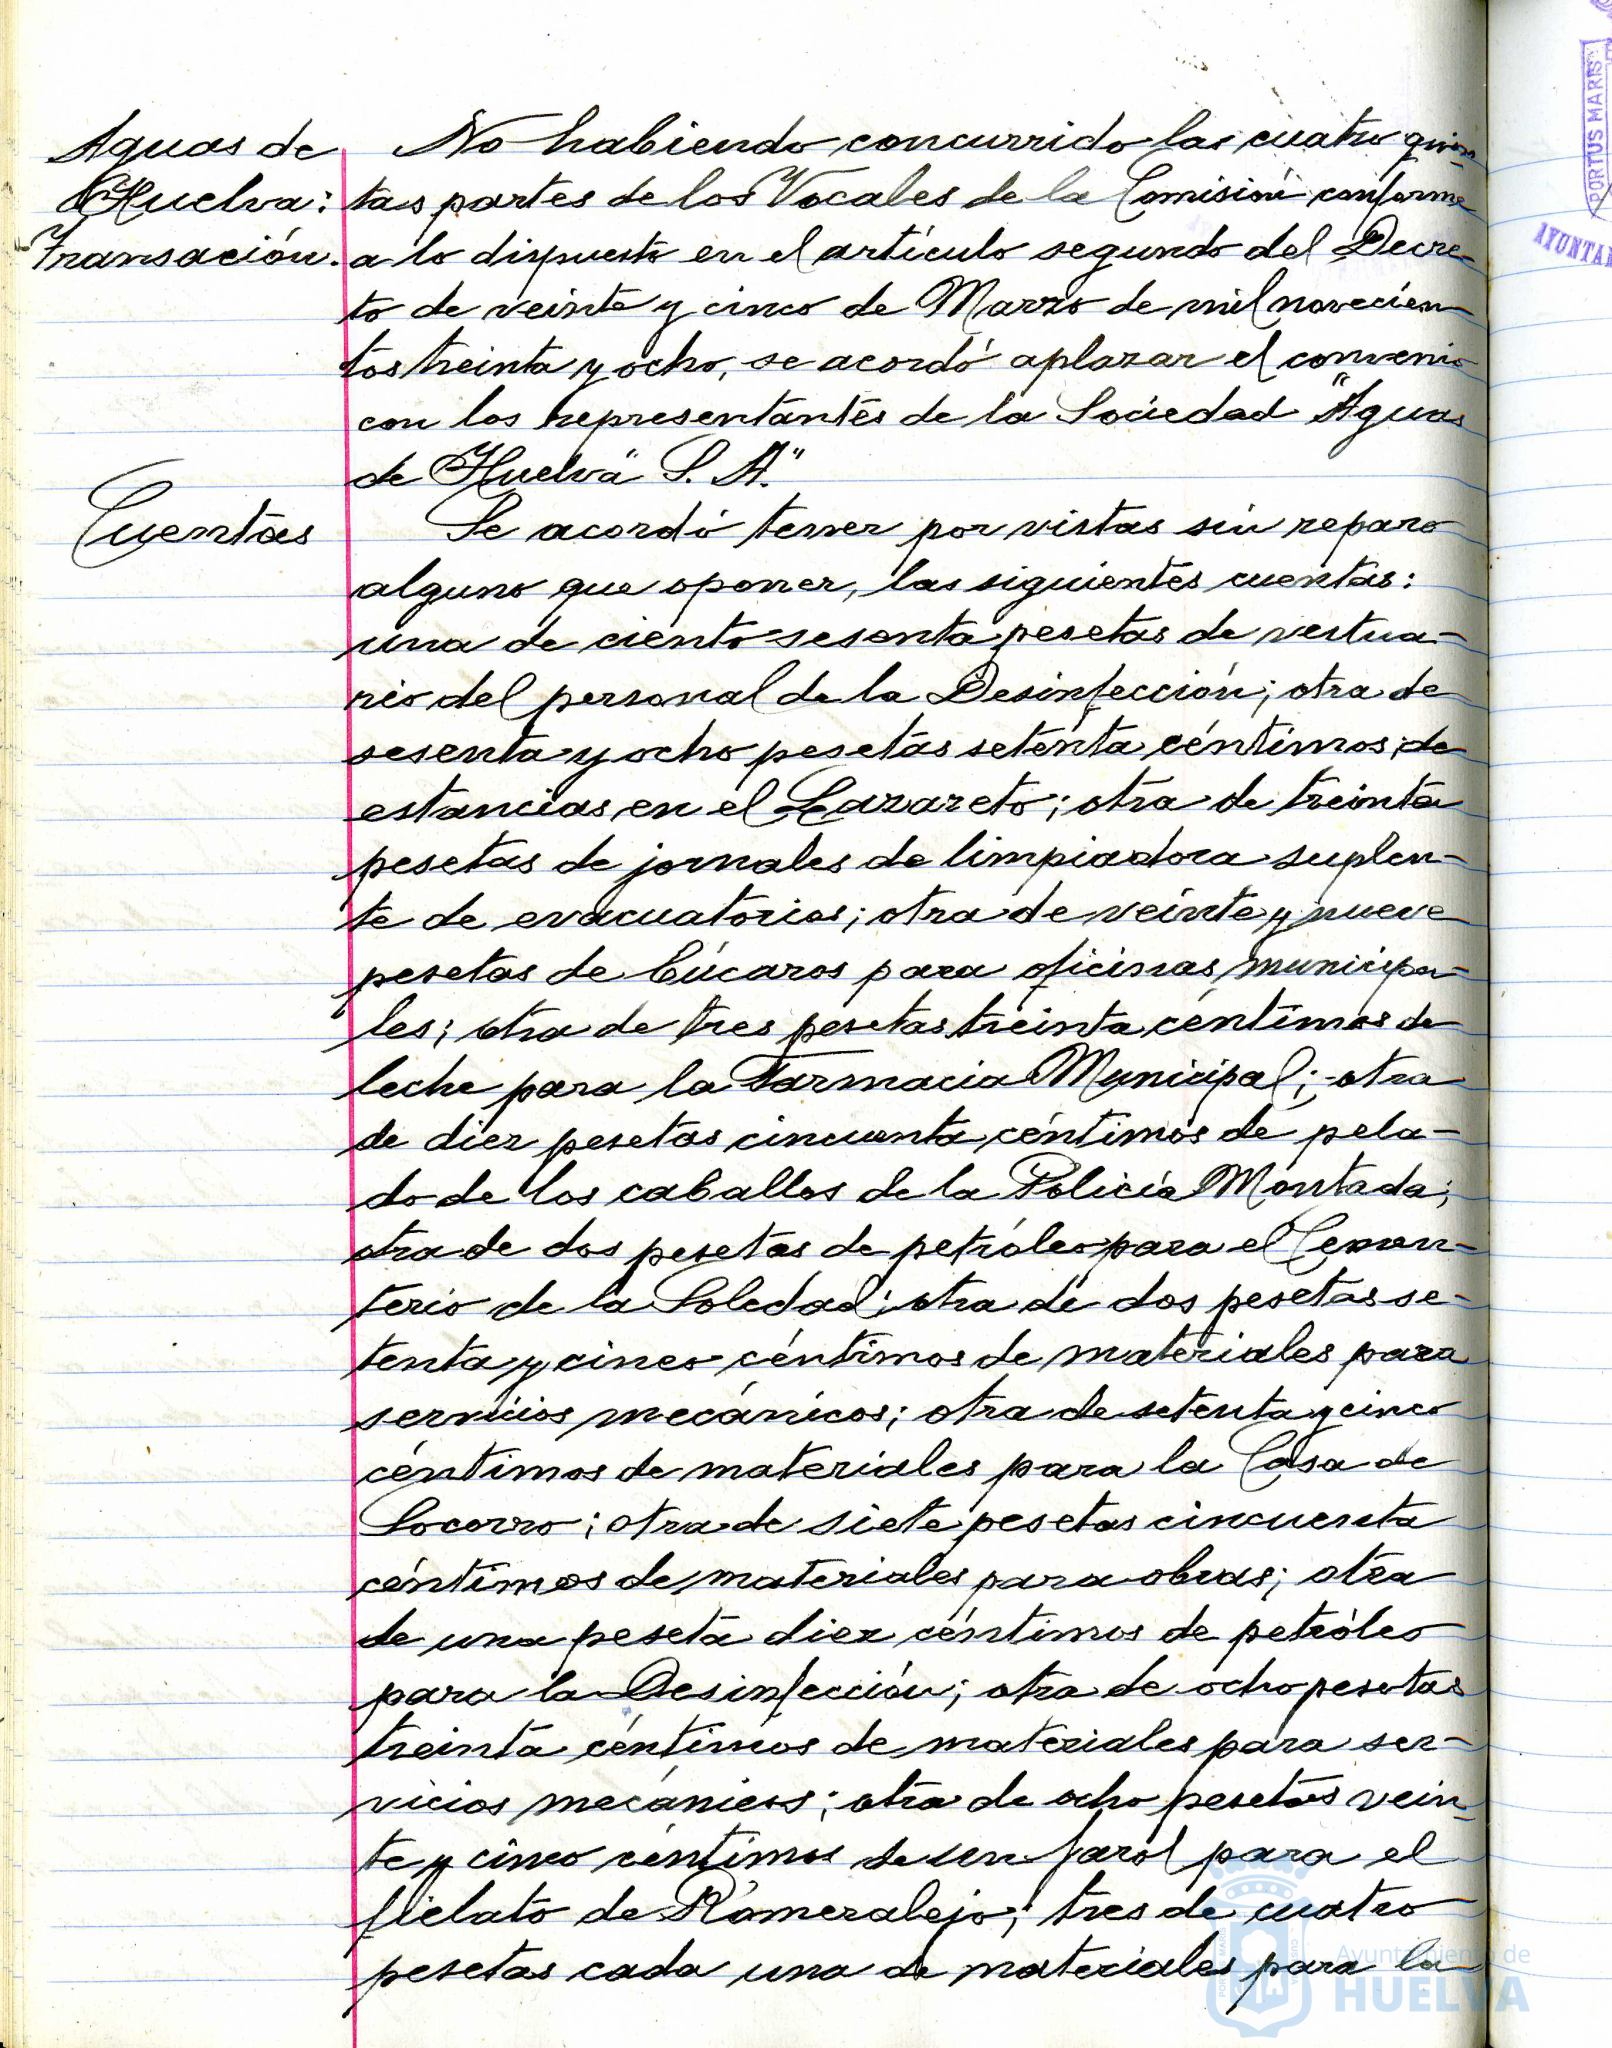 Aguas de
Huelva:
Transación.
No habiendo concurrido las cuatro quin-
tas partes de los Vocales de la Comisión conforme
a lo dispuesto en el artículo segundo del Decre-
to de veinte y cinco de Marzo de mil novecien-
tos treinta y ocho, se acordó aplazar el convenio
con los representantes de la Sociedad "Aguas
de Huelva" S. A."
Cuentas
Se acordó tener por vistas sin reparo
alguno que oponer, las siguientes cuentas:
una de ciento sesenta pesetas de vestua-
rio del personal de la Desinfección; otra de
sesenta y ocho pesetas setenta céntimos, de
estancias en el Lazareto; otra de treinta
pesetas de jornales de limpiadora suplen-
te de evacuatorios; otra de veinte y nueve
pesetas de búcaros para oficinas municipa-
les; otra de tres pesetas treinta céntimos de
leche para la Farmacia Municipal; otra
de diez pesetas cincuenta céntimos de pela-
do de los caballos de la Policía Montada;
otra de dos pesetas de petróleo para el Cemen-
terio de la Soledad; otra de dos pesetas se-
tenta y cinco céntimos de materiales para
servicios mecánicos; otra de setenta y cinco
céntimos de materiales para la Casa de
Socorro; otra de siete pesetas cincuenta
céntimos de materiales para obras; otra
de una peseta diez céntimos de petróleo
para la Desinfección; otra de ocho pesetas
treinta céntimos de materiales para ser-
vicios mecánicos; otra de ocho pesetas vein-
te y cinco céntimos de un farol para el
fielato de Romeralejo; tres de cuatro
pesetas cada una de materiales para la
PORTUS MARIS
AYUNTA
Ayuntamiento de
HUELVA